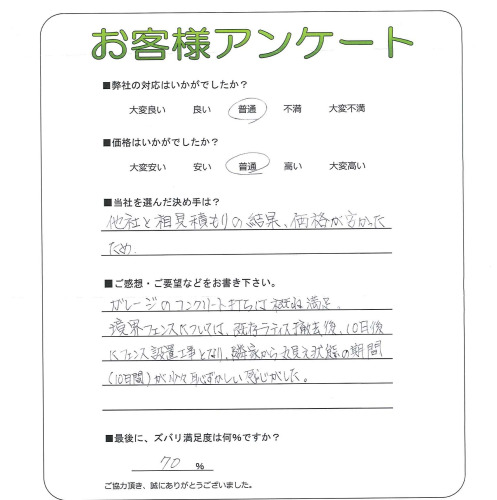 お客様アンケート
■弊社の対応はいかがでしたか？
大変良い 良い 普通 不満 大変不満
■価格はいかがでしたか？
大変安い 安い 普通 高い 大変高い
■当社を選んだ決め手は？
他社と相見積もりの結果、価格が安かった
ため
■ご感想・ご要望などをお書き下さい。
ガレージのコンクリート打ちは概ね満足。
境界フェンスについては、既存ラティス撤去後、10日後
にフェンス設置工事となり、隣家から丸見え状態の期間
(10日間)が少々恥ずかしい感じがした。
■最後に、ズバリ満足度は何％ですか？
70 %
ご協力頂き、誠にありがとうございました。